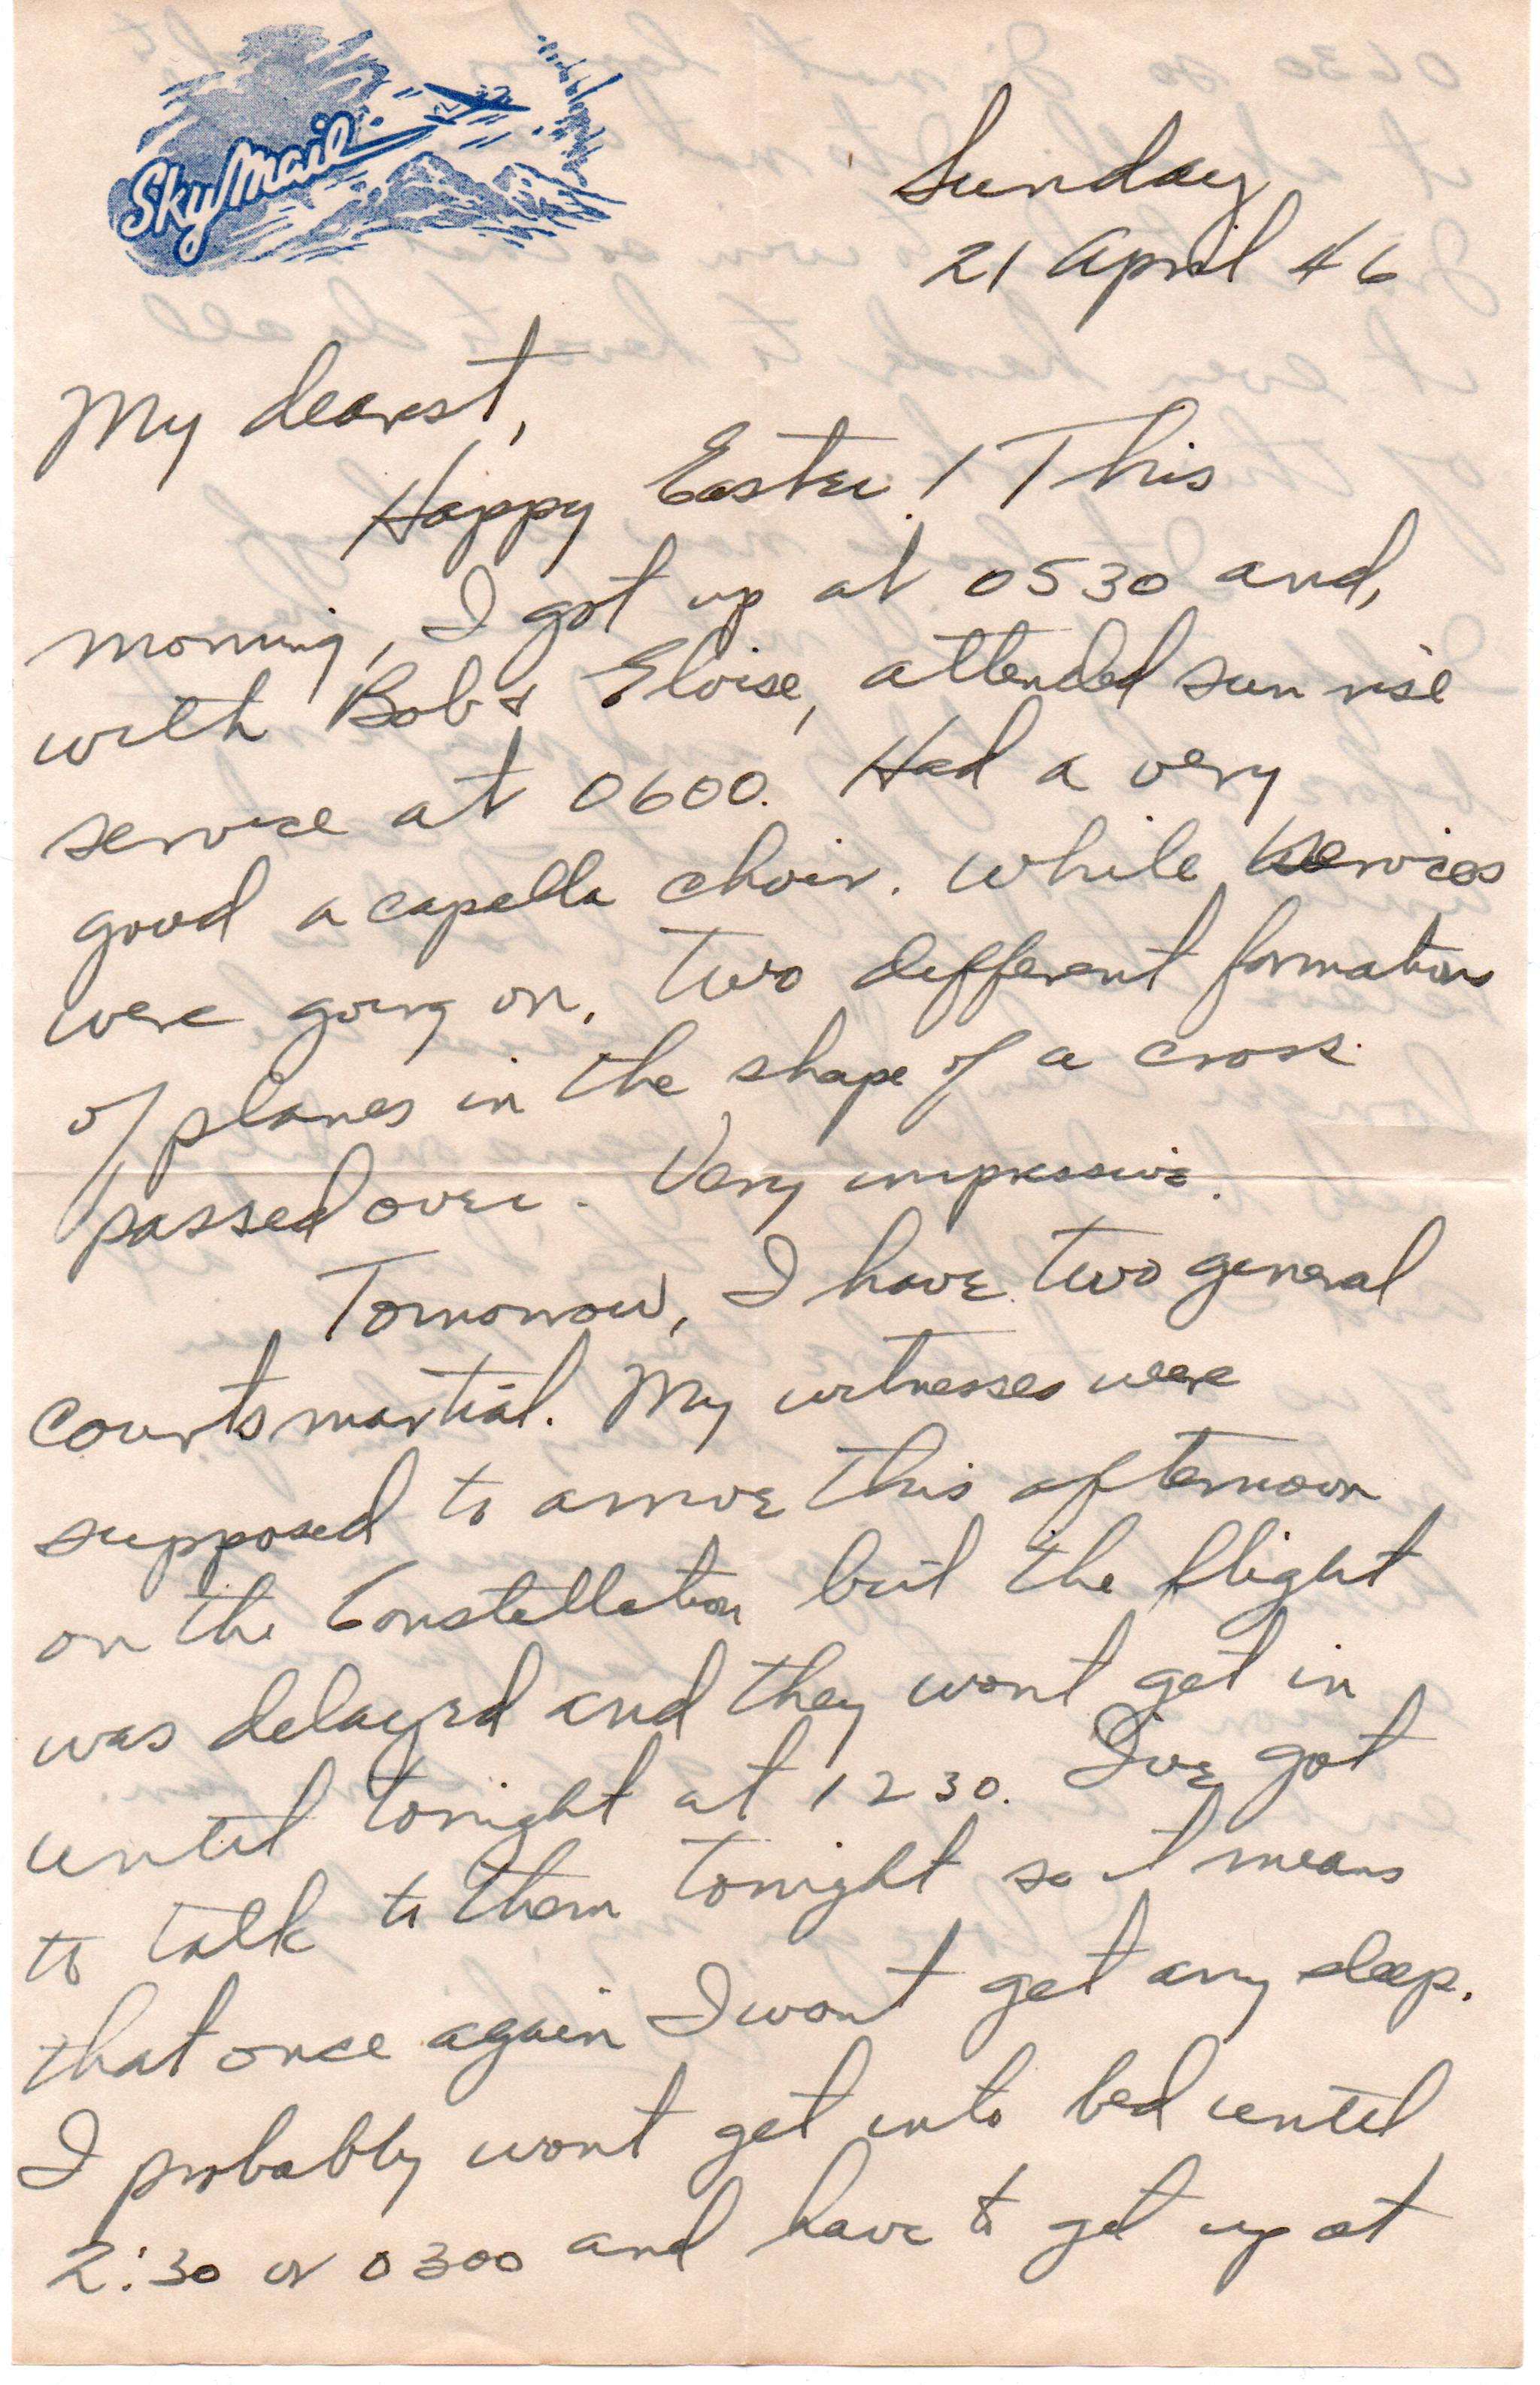 SkyMail
Sunday
21 April 46
My dearest,
Happy Easter! This
morning, I got up at 0530 and,
with Bob & Eloise, attended sun rise
service at 0600. Had a very
good a capella choir. While services
were going on, two different formations
of planes in the shape of a cross
passed over. Very impressive.
Tomorrow, I have two general
courts martial. My witnesses were
supposed to arrive this afternoon
on the Constellation but the flight
was delayed and they wont get in
until tonight at 1230. I've got
to talk to them tonight so it means
that once again I wont get any sleep.
I probably wont get into bed until
2:30 or 0300 and have to get up at